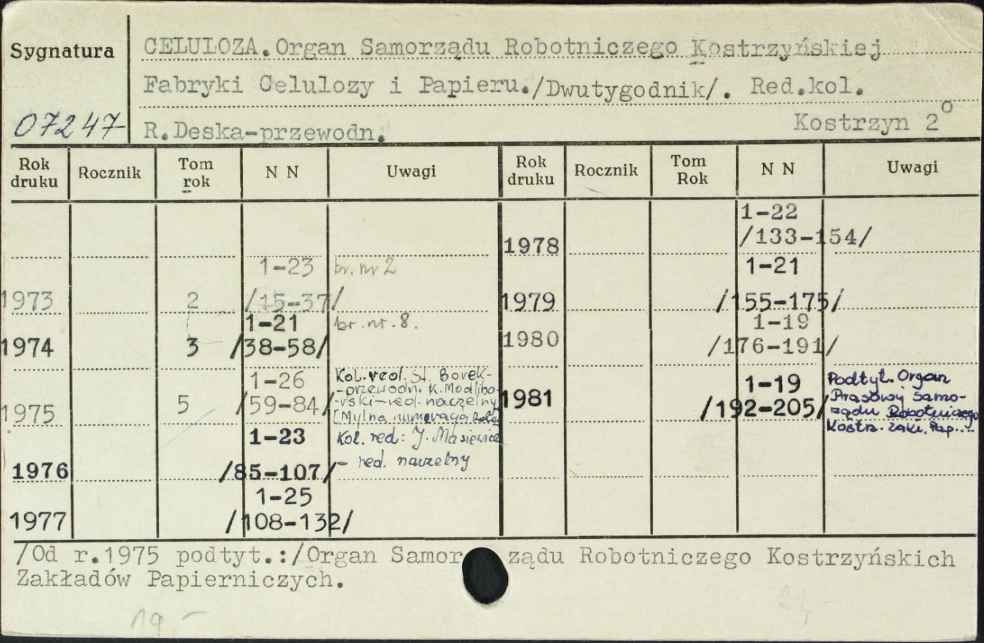 Sygnatura
CELULOZA.Organ Samorządu Robotniczego Kostrzyńskiej
Fabryki Celulozy i Papieru./Dwutygodnik/. Red.kol.
07247
R.Deska-przewodn. Kostrzyn 2°
Rok druku Rocznik Tom rok N N Uwagi Rok druku Rocznik Tom Rok N N Uwagi
1973 2 1-23 /15-37/ br. nr 2
1974 3 1-21 /38-58/ br. nr. 8.
1975 5 1-26 /59-84/
Kol. red. St. Borek-
-przewodn. K. Modlibo-
wski-red. naczelny
[Mylna numeracja
1976 1-23 /85-107/
Kol. red: J. Masiewicz
- red. naczelny
1977 1-25 /108-132/
1978 1-22 /133-154/
1979 1-21 /155-175/
1980 1-19 /176-191/
1981 1-19 /192-205/
Podtyt. Organ
Prasowy Samo-
rządu Robotniczego
Kostrz. Zakł. Pap.
/Od r.1975 podtyt.:/Organ Samorządu Robotniczego Kostrzyńskich
Zakładów Papierniczych.
19.-